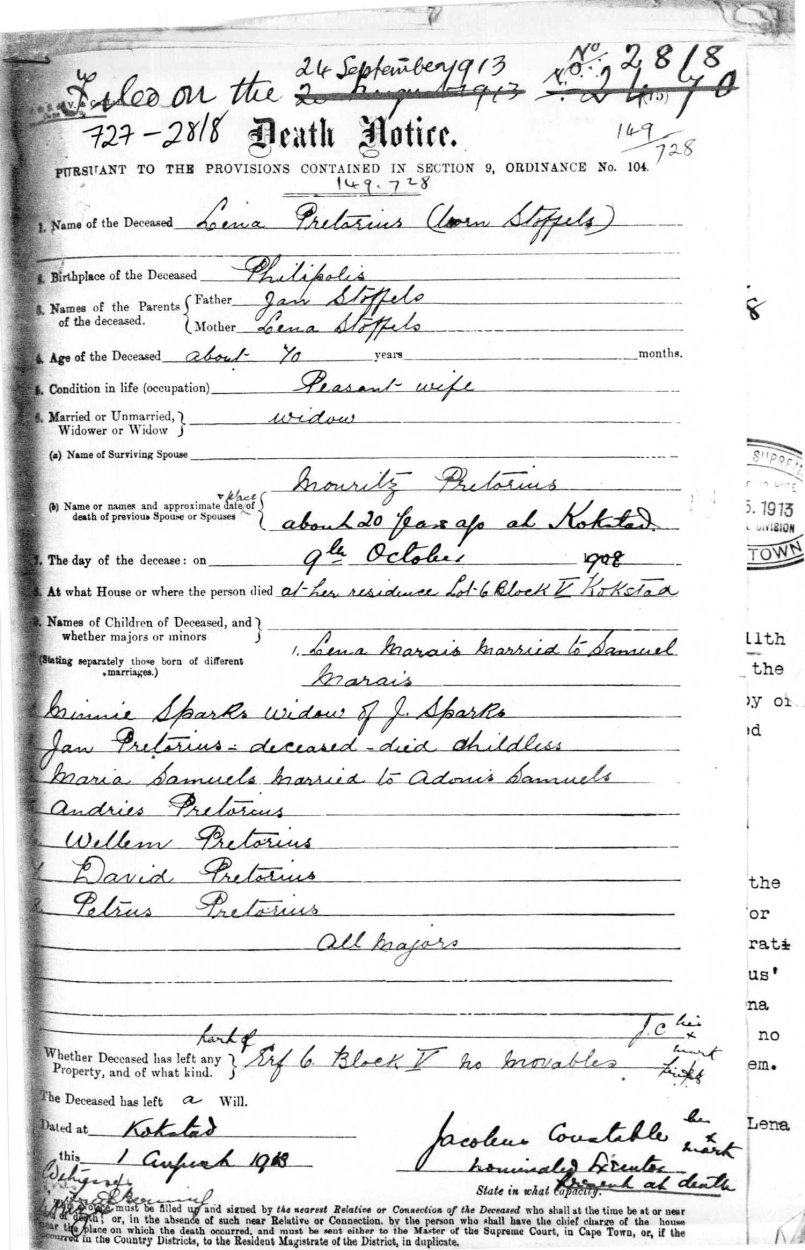 24 September 1913 No 2818
Filed on the 20 August 1913 No. 2470
727-2818 Death Notice. 149/728
PURSUANT TO THE PROVISIONS CONTAINED IN SECTION 9, ORDINANCE No. 104.
149.728
1. Name of the Deceased Lena Pretorius (born Stoffels)
2. Birthplace of the Deceased Philipolis
3. Names of the Parents of the deceased. { Father Jan Stoffels
Mother Lena Stoffels
4. Age of the Deceased about 70 years months.
5. Condition in life (occupation) Peasant wife
6. Married or Unmarried, Widower or Widow } widow
(a) Name of Surviving Spouse
Mouritz Pretorius
(b) Name or names and approximate date & place of death of previous Spouse or Spouses { about 20 years ago at Kokstad.
7. The day of the decease: on 9th October 1908
8. At what House or where the person died at her residence Lot 6 Block V Kokstad
9. Names of Children of Deceased, and whether majors or minors }
(Stating separately those born of different marriages.)
1. Lena Marais Married to Samuel
Marais
Minnie Sparks widow of J. Sparks
Jan Pretorius - deceased - died childless
Maria Samuels Married to Adonis Samuels
Andries Pretorius
Wellem Pretorius
David Pretorius
8 Petrus Pretorius
All Majors
J.C his x mark
Whether Deceased has left any Property, and of what kind. } part of Erf 6 Block V no Movables
The Deceased has left a Will.
Dated at Kokstad
this 1 August 1913
Jacobus Constable his x mark
nominated Executor
State in what capacity. present at death
Witness
must be filled up and signed by the nearest Relative or Connection of the Deceased who shall at the time be at or near
of death; or, in the absence of such near Relative or Connection, by the person who shall have the chief charge of the house
near the place on which the death occurred, and must be sent either to the Master of the Supreme Court, in Cape Town, or, if the
occurred in the Country Districts, to the Resident Magistrate of the District, in duplicate.
8
SUPRE
5. 1913
DIVISION
TOWN
11th
the
py of
ed
the
or
rati
us'
na
no
em.
Lena